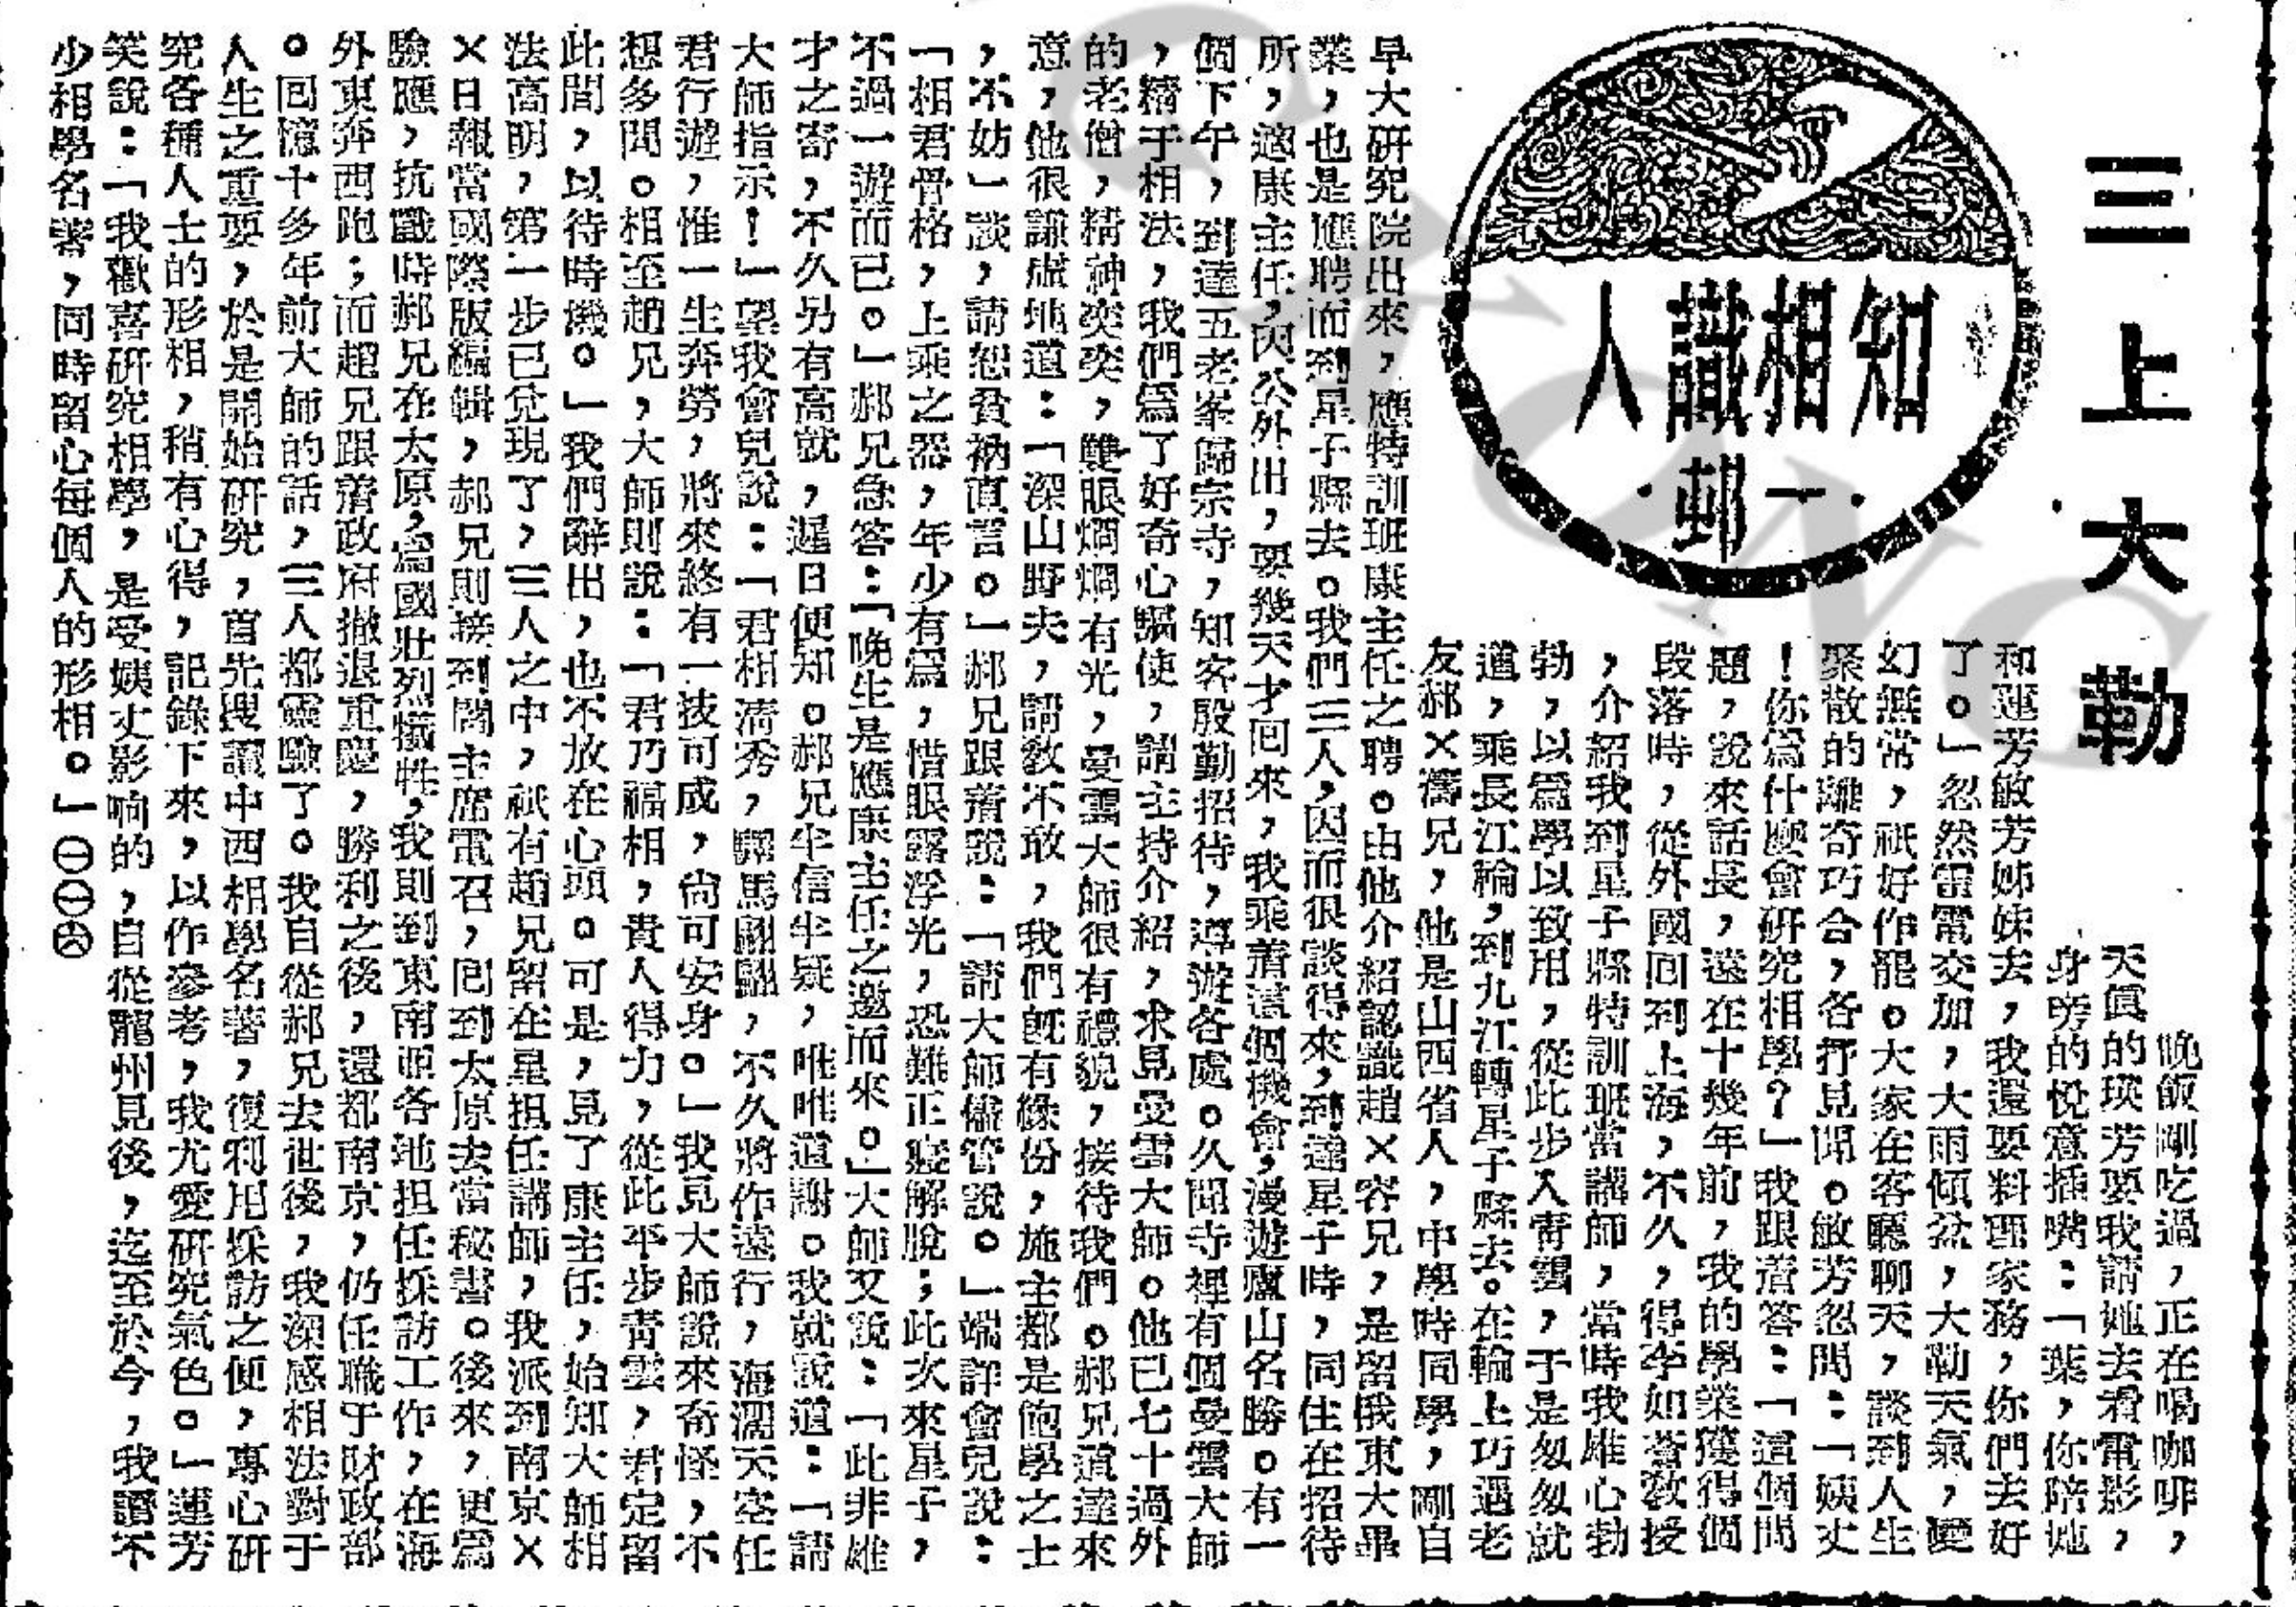 三上大勒
知相識人
·一邨·
晚飯剛吃過，正在喝咖啡，
天眞的瑛芳要我請她去看電影，
身旁的悅意插嘴：「葉，你陪她
和蓮芳敏芳姊妹去，我還要料理家務，你們去好
了。」忽然雷電交加，大雨傾盆，大勒天氣，變
幻無常，祇好作罷。大家在客廳聊天，談到人生
聚散的離奇巧合，各抒見聞。敏芳忽問：「姨丈
！你爲什麼會研究相學？」我跟着答：「這個問
題，說來話長，遠在十幾年前，我的學業獲得個
段落時，從外國回到上海，不久，得李如蒼敎授
，介紹我到星子縣特訓班當講師，當時我雄心勃
勃，以爲學以致用，從此步入青雲，于是匆匆就
道，乘長江輪，到九江轉星子縣去。在輪上巧遇老
友郝×濤兄，他是山西省人，中學時同學，剛自
早大研究院出來，應特訓班康主任之聘。由他介紹認識趙×容兄，是留俄東大畢
業，也是應聘而到星子縣去。我們三人，因而很談得來，到達星子時，同住在招待
所，適康主任，因公外出，要幾天才回來，我乘着這個機會，漫遊廬山名勝。有一
個下午，到達五老峯歸宗寺，知客殷勤招待，導遊各處。久聞寺裡有個曼雲大師
，精于相法，我們爲了好奇心驅使，請主持介紹，求見曼雲大師。他已七十過外
的老僧，精神奕奕，雙眼烱烱有光，曼雲大師很有禮貌，接待我們。郝兄道達來
意，他很謙虛地道：「深山野夫，請敎不敢，我們旣有緣份，施主都是飽學之士
，不妨」談，請恕貧衲直言。」郝兄跟着說：「請大師儘管說。」端詳會兒說：
「相君骨格，上乘之器，年少有爲，惜眼露浮光，恐難正寢解脫；此次來星子，
不過一遊而已。」郝兄急答：「晚生是應康主任之邀而來。」大師又說：「此非雄
才之寄，不久另有高就，遲日便知。郝兄半信半疑，唯唯道謝。我就說道：「請
大師指示！」望我會兒說：「君相淸秀，驛馬翩翩，不久將作遠行，海濶天空任
君行遊，惟一生奔勞，將來終有一技可成，尙可安身。」我見大師說來奇怪，不
想多問。相至趙兄，大師則說：「君乃福相，貴人得力，從此平步靑雲，君定留
此間，以待時機。」我們辭出，也不放在心頭。可是，見了康主任，始知大師相
法高明，第一步已兌現了，三人之中，祇有趙兄留在星担任講師，我派到南京×
×日報當國際版編輯，郝兄則接到閻主席電召，回到太原去當秘書。後來，更爲
驗應，抗戰時郝兄在太原，爲國壯烈犧牲，我則到東南亞各地担任採訪工作，在海
外東奔西跑；而趙兄跟着政府撤退重慶，勝利之後，還都南京，仍任職于財政部
。回憶十多年前大師的話，三人都靈驗了。我自從郝兄去世後，我深感相法對于
人生之重要，於是開始研究，首先搜讀中西相學名著，復利用採訪之便，專心研
究各種人士的形相，稍有心得，記錄下來，以作參考，我尤愛研究氣色。」蓮芳
笑說：「我歡喜研究相學，是受姨丈影响的，自從龍州見後，迄至於今，我讀不
少相學名著，同時留心每個人的形相。」㊀㊀㊅